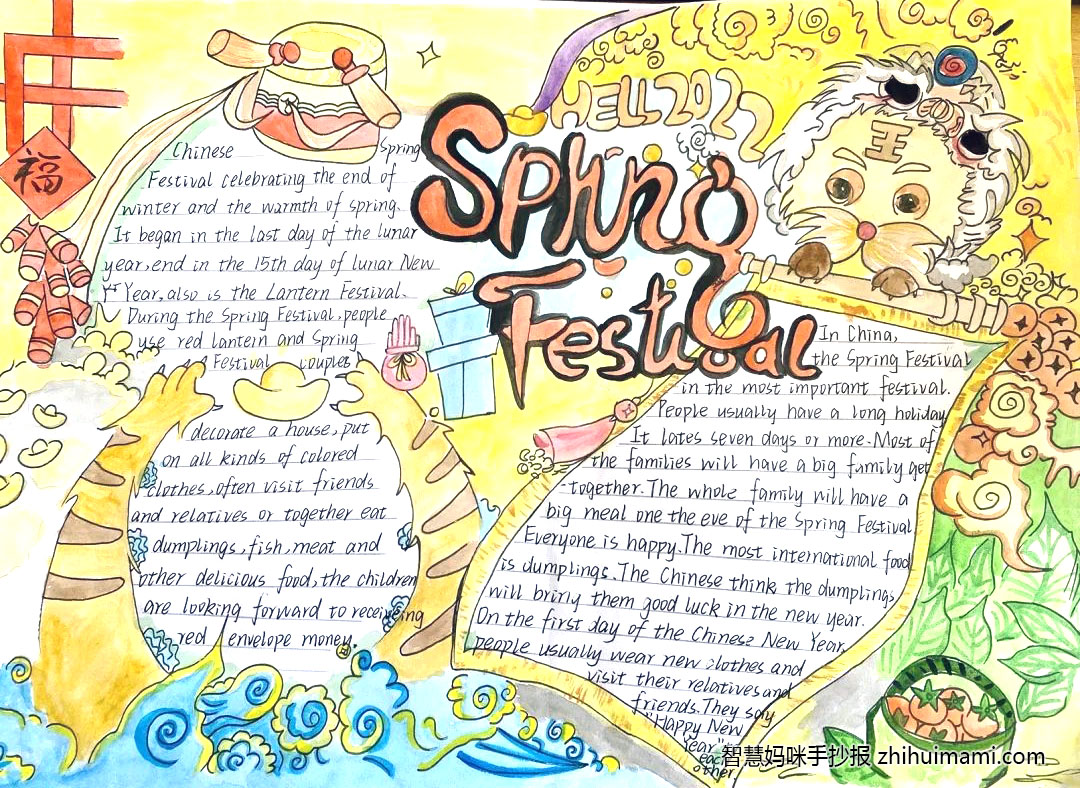 福
HELL 2022
Spring
Festival
王
Chinese Spring
Festival celebrating the end of
winter and the warmth of spring.
It began in the last day of the lunar
year,end in the 15th day of lunar New
Year,also is the Lantern Festival.
During the Spring Festival,people
use red lantern and Spring
Festival couples
decorate a house,put
on all kinds of colored
clothes,often visit friends
and relatives or together eat
dumplings,fish,meat and
other delicious food,the children
are looking forward to receiveing
red envelope money.
In China,
the Spring Festival
in the most important festival.
People usually have a long holiday
It lates seven days or more.Most of
the families will have a big family get
-together.The whole family will have a
big meal one the eve of the Spring Festival
Everyone is happy.The most international food
is dumplings.The Chinese think the dumplings
will bring them good luck in the new year.
On the first day of the Chinese New Year,
people usually wear new clothes and
visit their relatives and
friends.They say
"Happy New
Year"
each
other
智慧妈咪手抄报 zhihuimami.com